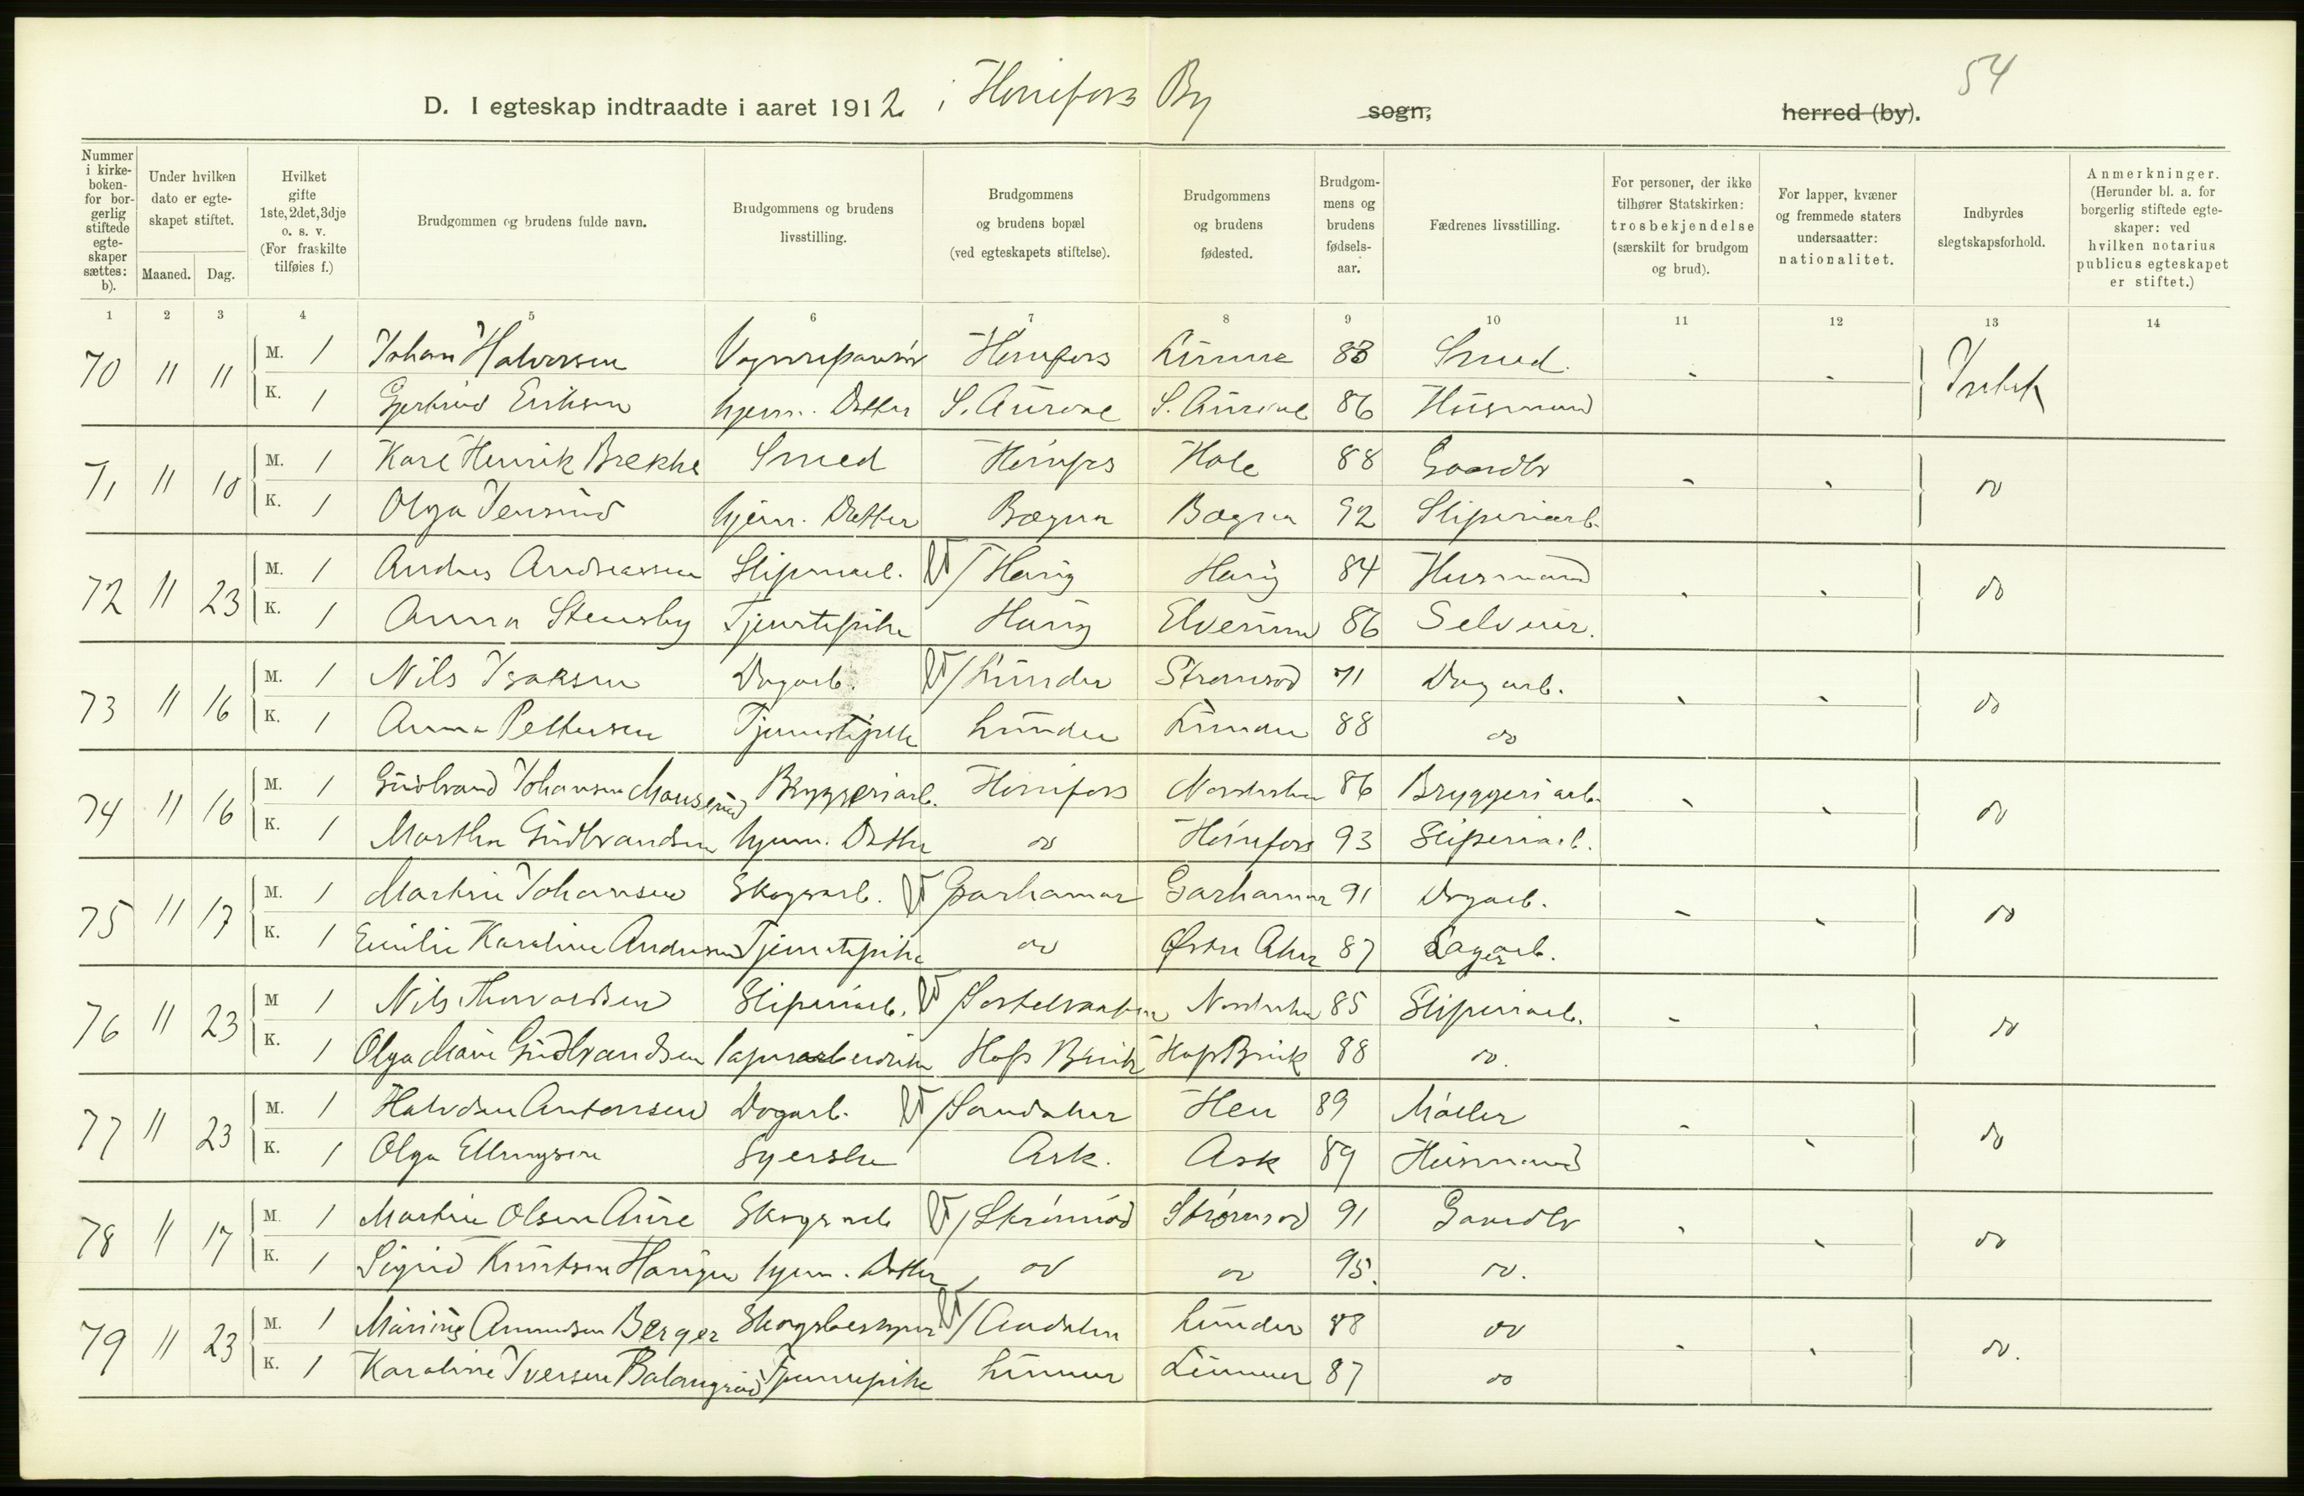 54
D. I egteskap indtraadte i aaret 1912 i Hønefoss By sogn, herred (by).
Nummer i kirkeboken for borgerlig stiftede egteskaper sættes: b).
Under hvilken dato er egteskapet stiftet.
Maaned. Dag.
Hvilket gifte 1ste, 2det, 3dje o. s. v. (For fraskilte tilføies f.)
Brudgommen og brudens fulde navn.
Brudgommens og brudens livsstilling.
Brudgommens og brudens bopæl (ved egteskapets stiftelse).
Brudgommens og brudens fødested.
Brudgommens og brudens fødselsaar.
Fædrenes livsstilling.
For personer, der ikke tilhører Statskirken: trosbekjendelse (særskilt for brudgom og brud).
For lapper, kvæner og fremmede staters undersaatter: nationalitet.
Indbyrdes slegtskapsforhold.
Anmerkninger. (Herunder bl. a. for borgerlig stiftede egteskaper: ved hvilken notarius publicus egteskapet er stiftet.)
1 2 3 4 5 6 7 8 9 10 11 12 13 14
70 11 11 M. 1 Johan Halvorsen Hønefoss 88 Smed.
K. 1 Gjertrud Eriksen hjem. Datter S. Aurdal S. Aurdal 86 Husmand
71 11 10 M. 1 Karl Henrik Brekke Smed Hønefos Hole 88 Gaardbr
K. 1 Olga Jensrud hjem. Datter Bægna Bægna 92 Sliperiarb. do
72 11 23 M. 1 Anders Andreassen Sliperiarb. Haug Haug 84 Husmand
K. 1 Anna Stensby Tjenestepike Haug Elverum 86 Selveier. do
73 11 16 M. 1 Nils Isaksen Dagarb. Lunder Strømsod 71 Dagarb.
K. 1 Anna Pettersen Tjenestepike Lunder Lunder 88 do do
74 11 16 M. 1 Gudbrand Johansen Bryggeriarb. Hønefoss Norderhov 86 Bryggeriarb.
K. 1 Martha Gudbrandsen hjem. Datter do Hønefoss 93 Sliperiarb. do
75 11 17 M. 1 Martin Johansen Skogsarb. Garhamar Garhamar 91 Dagarb.
K. 1 Emilie Karoline Andersen Tjenestepike do Østre Aker 87 Lagerarb. do
76 11 23 M 1 Nils Thorvaldsen Sliperiarb. Norderhov 85 Sliperiarb.
K. 1 Olga Marie Gudbrandsen Papirarbeiderske Hofs Bruk Hofs Bruk 88 do. do
77 11 23 M. 1 Halvdan Antonsen Dagarb. Hen 89 Møller
K. 1 Olga Ellingsen Syerske Ask. Ask 89 Husmand do
78 11 17 M. 1 Martin Olsen Aure Skogsarb Strømsod Strømsod 91 Gaardbr
K. 1 Sigrid Knutsen Haugen hjem. Datter do do 95. do. do
79 11 23 M. 1 Marius Amundsen Berger Lunder 88 do
K. 1 Karoline Iversen Tjenestepike Lunner Lunner 87 do do.